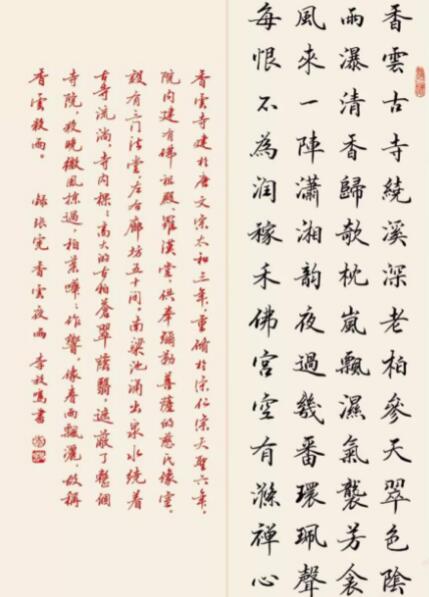 香雲古寺繞溪深老柏參天翠色陰
雨瀑清香歸欹枕嵐飄濕氣襲芳衾
風來一陣瀟湘韵夜過幾番環珮聲
每恨不為潤稼禾佛宮空有滌禪心
香雲寺建於唐文宗太和三年，重脩於宋仁宗天聖六年，
院内建有佛祖殿、羅漢堂，供奉彌勒菩薩的慈氏像堂，
設有三门法堂，左右廊坊五十间，南梁池涌出泉水繞着
古寺流淌，寺内棵棵高大的古柏蒼翠蔭翳，遮蔽了整個
寺院，夜晚微風掠過，柏葉嘩嘩作響，像春雨飄灑，故稱
香雲夜雨。 録張 香雲夜雨 李 鳴書